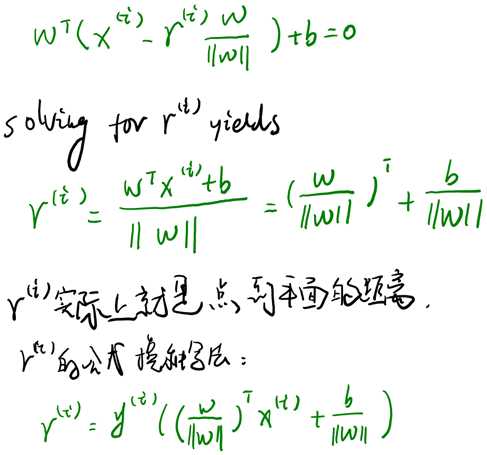 w^T(x^(i) - r^(i) w/||w||) + b = 0
solving for r^(i) yields
r^(i) = (w^T x^(i) + b)/||w|| = (w/||w||)^T + b/||w||
r^(i)实际上就是点到平面的距离.
r^(i)的公式 写法:
r^(i) = y^(i)((w/||w||)^T x^(i) + b/||w||)